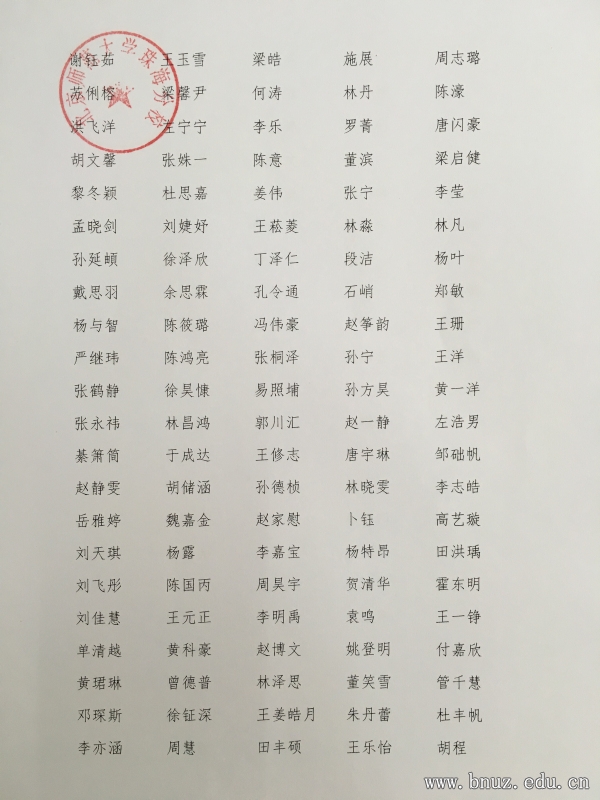 谢钰茹 王玉雪 梁皓 施展 周志璐
苏俐榕 梁馨尹 何涛 林丹 陈濠
洪飞洋 左宁宁 李乐 罗菁 唐闪豪
胡文馨 张姝一 陈意 董滨 梁启健
黎冬颖 杜思嘉 姜伟 张宁 李莹
孟晓剑 刘婕妤 王菘菱 林淼 林凡
孙延頔 徐泽欣 丁泽仁 段洁 杨叶
戴思羽 余思霖 孔令通 石峭 郑敏
杨与智 陈筱璐 冯伟豪 赵筝韵 王珊
严继玮 陈鸿亮 张桐泽 孙宁 王洋
张鹤静 徐昊慷 易照埔 孙方昊 黄一洋
张永祎 林昌鸿 郭川汇 赵一静 左浩男
綦箫简 于成达 王修志 唐宇琳 邹础帆
赵静雯 胡储涵 孙德桢 林晓雯 李志皓
岳雅婷 魏嘉金 赵家慰 卜钰 高艺璇
刘天琪 杨露 李嘉宝 杨特昂 田洪瑀
刘飞彤 陈国丙 周昊宇 贺清华 霍东明
刘佳慧 王元正 李明禹 袁鸣 王一铮
单清越 黄科豪 赵博文 姚登明 付嘉欣
黄珺琳 曾德普 林泽思 董笑雪 管千慧
邓琛斯 徐钲深 王姜皓月 朱丹蕾 杜丰帆
李亦涵 周慧 田丰硕 王乐怡 胡程
北京师范大学珠海分校
www.bnuz.edu.cn